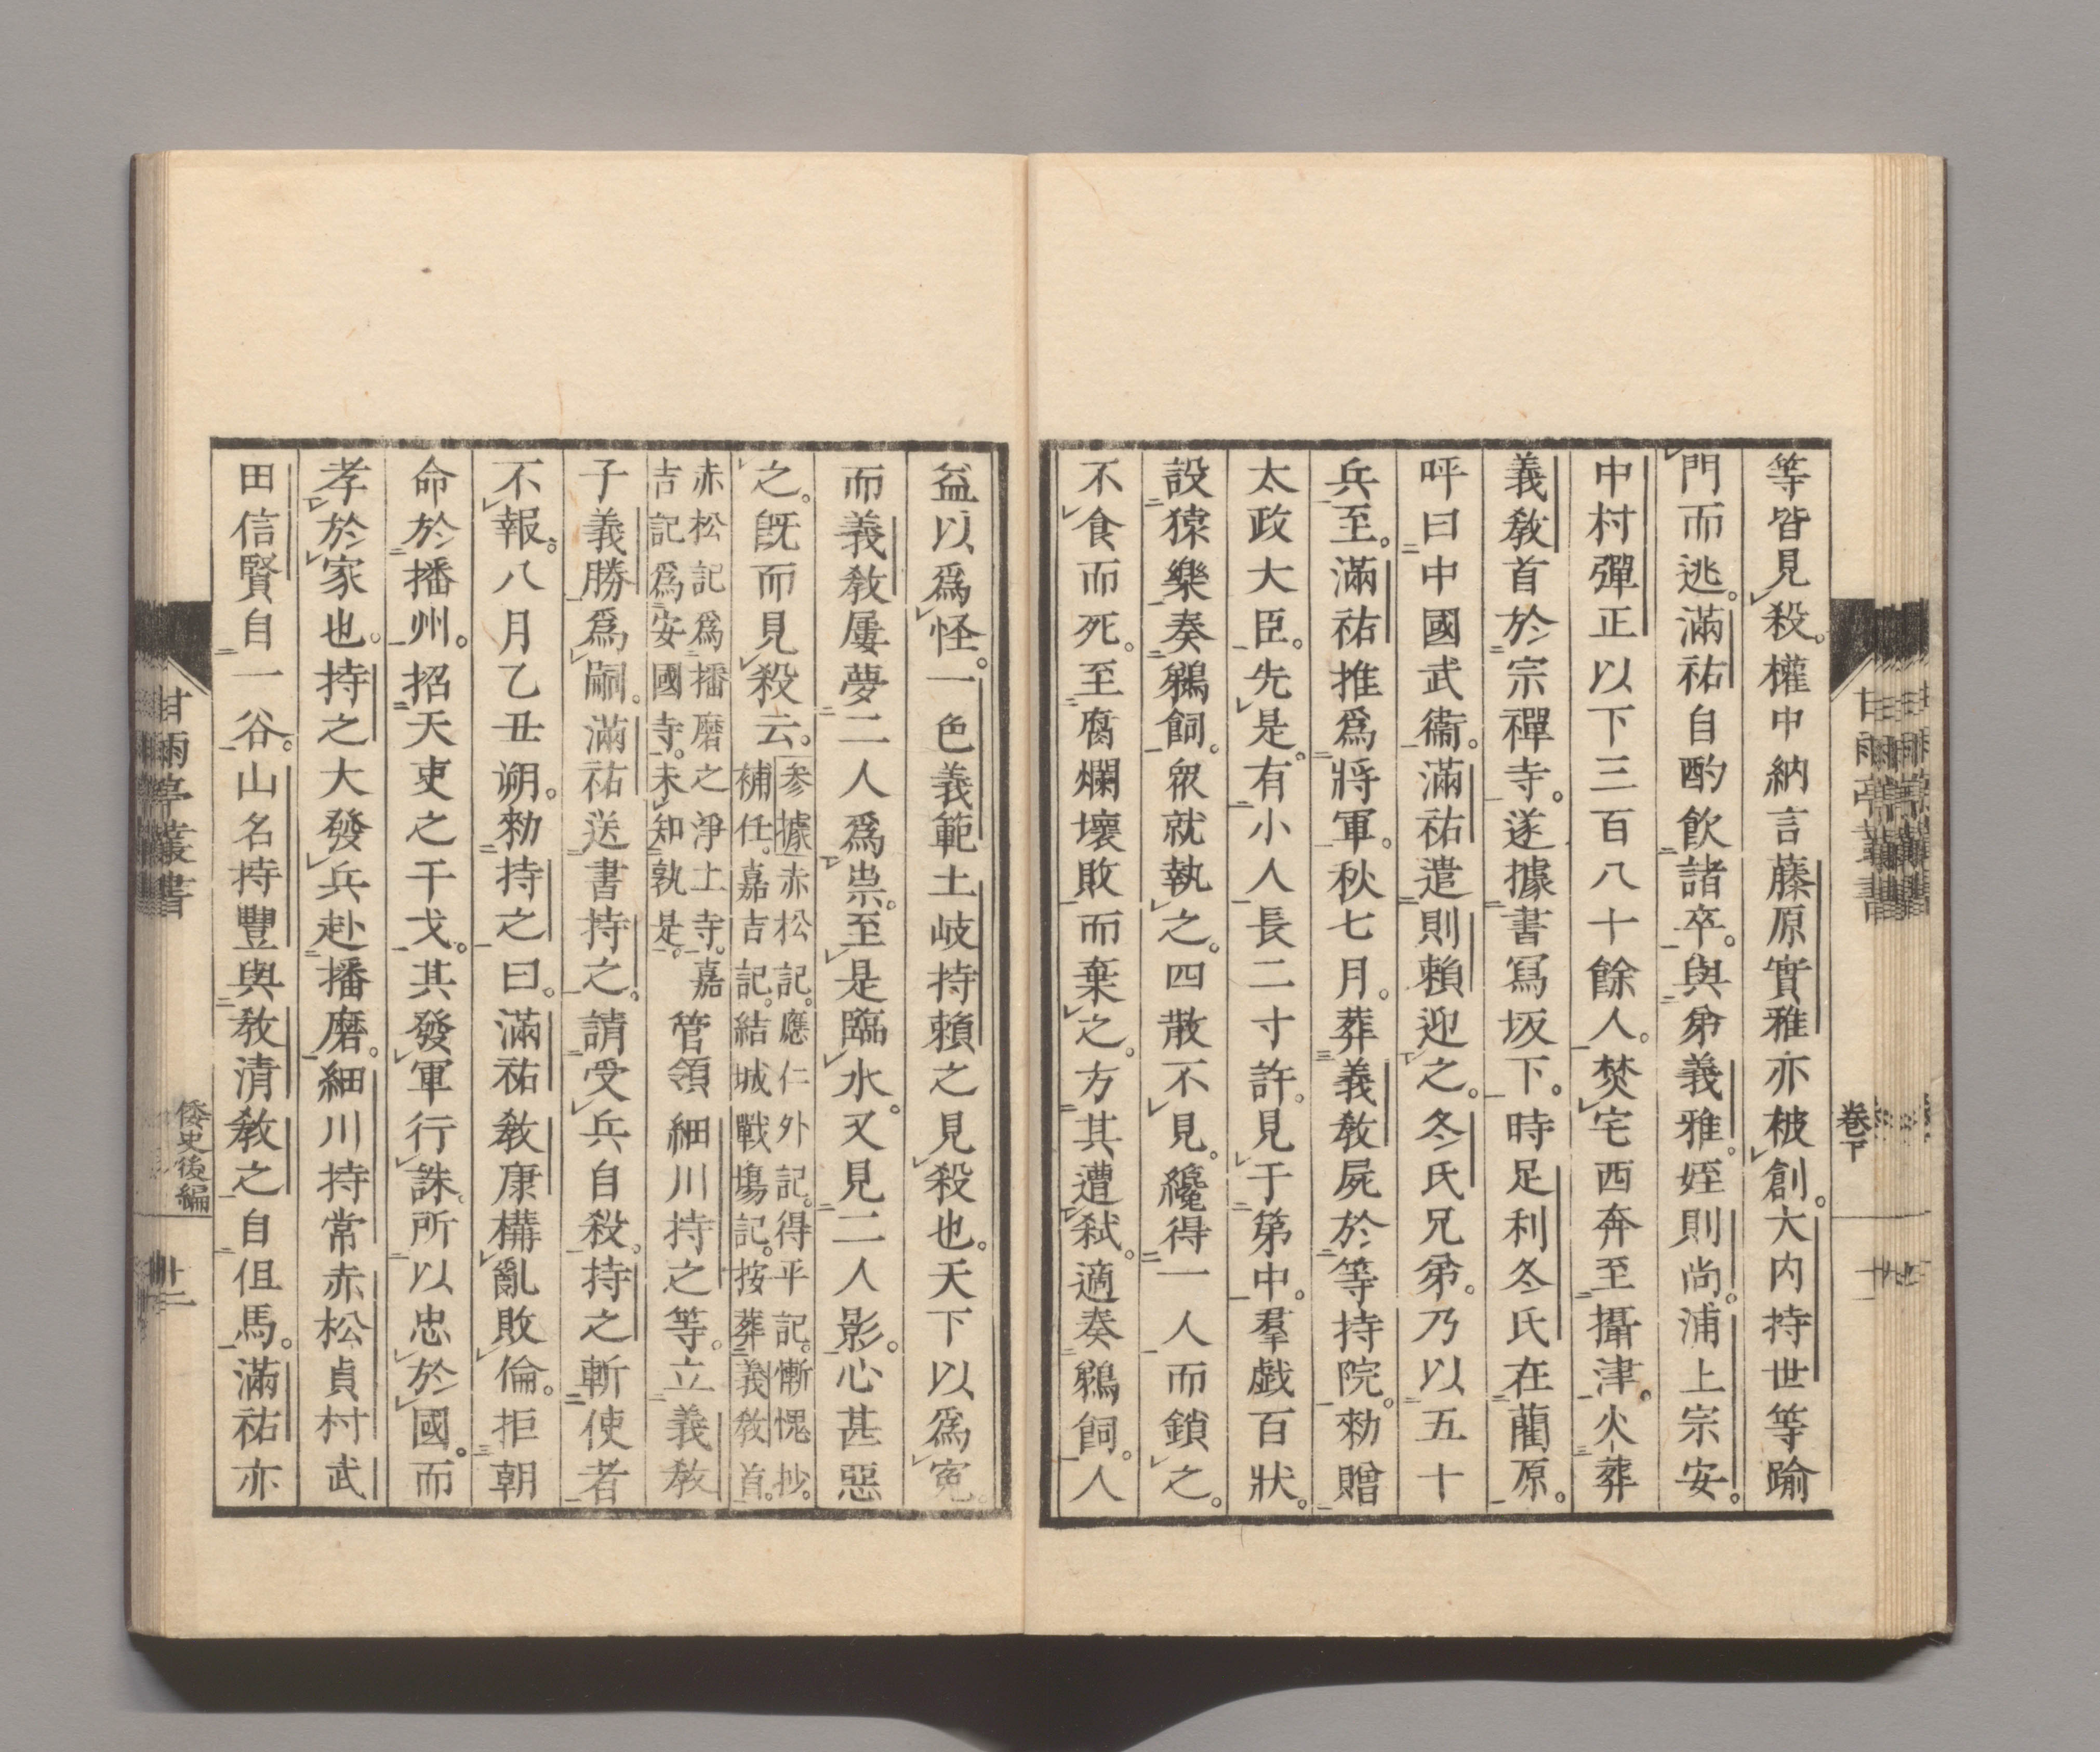 等皆見殺。權中納言藤原實雅亦被創。大内持世等踰
門而逃。滿祐自酌飲諸卒。與弟義雅。姪則尚。浦上宗安。
中村彈正以下三百八十餘人。焚宅西奔至攝津。火葬
義敎首於宗禪寺。遂據書冩坂下。時足利冬氏在藺原。
呼曰中國武衞。滿祐遣則賴迎之。冬氏兄弟。乃以五十
兵至。滿祐推爲將軍。秋七月。葬義敎屍於等持院。勑贈
太政大臣。先是。有小人長二寸許。見于第中。羣戯百狀。
設猿樂奏鵺飼。衆就執之。四散不見。纔得一人而鎖之。
不食而死。至腐爛壞敗而棄之。方其遭弑。適奏鵺飼。人
益以爲怪。一色義範土岐持賴之見殺也。天下以爲寃。
而義敎屢夢二人爲祟。至是臨水。又見二人影。心甚惡
之。既而見殺云。参據赤松記。應仁外記。得平記。慚愧抄。
補任。嘉吉記。結城戰塲記。按葬義敎首。
赤松記爲播磨之淨土寺。嘉
吉記爲安國寺。未知孰是。
管領細川持之等。立義敎
子義勝爲嗣。滿祐送書持之。請受兵自殺。持之斬使者
不報。八月乙丑朔。勑持之曰。滿祐敎康構亂敗倫。拒朝
命於播州。招天吏之干戈。其發軍行誅。所以忠於國。而
孝於家也。持之大發兵赴播磨。細川持常赤松貞村武
田信賢自一谷。山名持豐與敎清敎之自伹馬。滿祐亦
甘雨亭叢書
倭史後編
十二
甘雨亭叢書
卷下